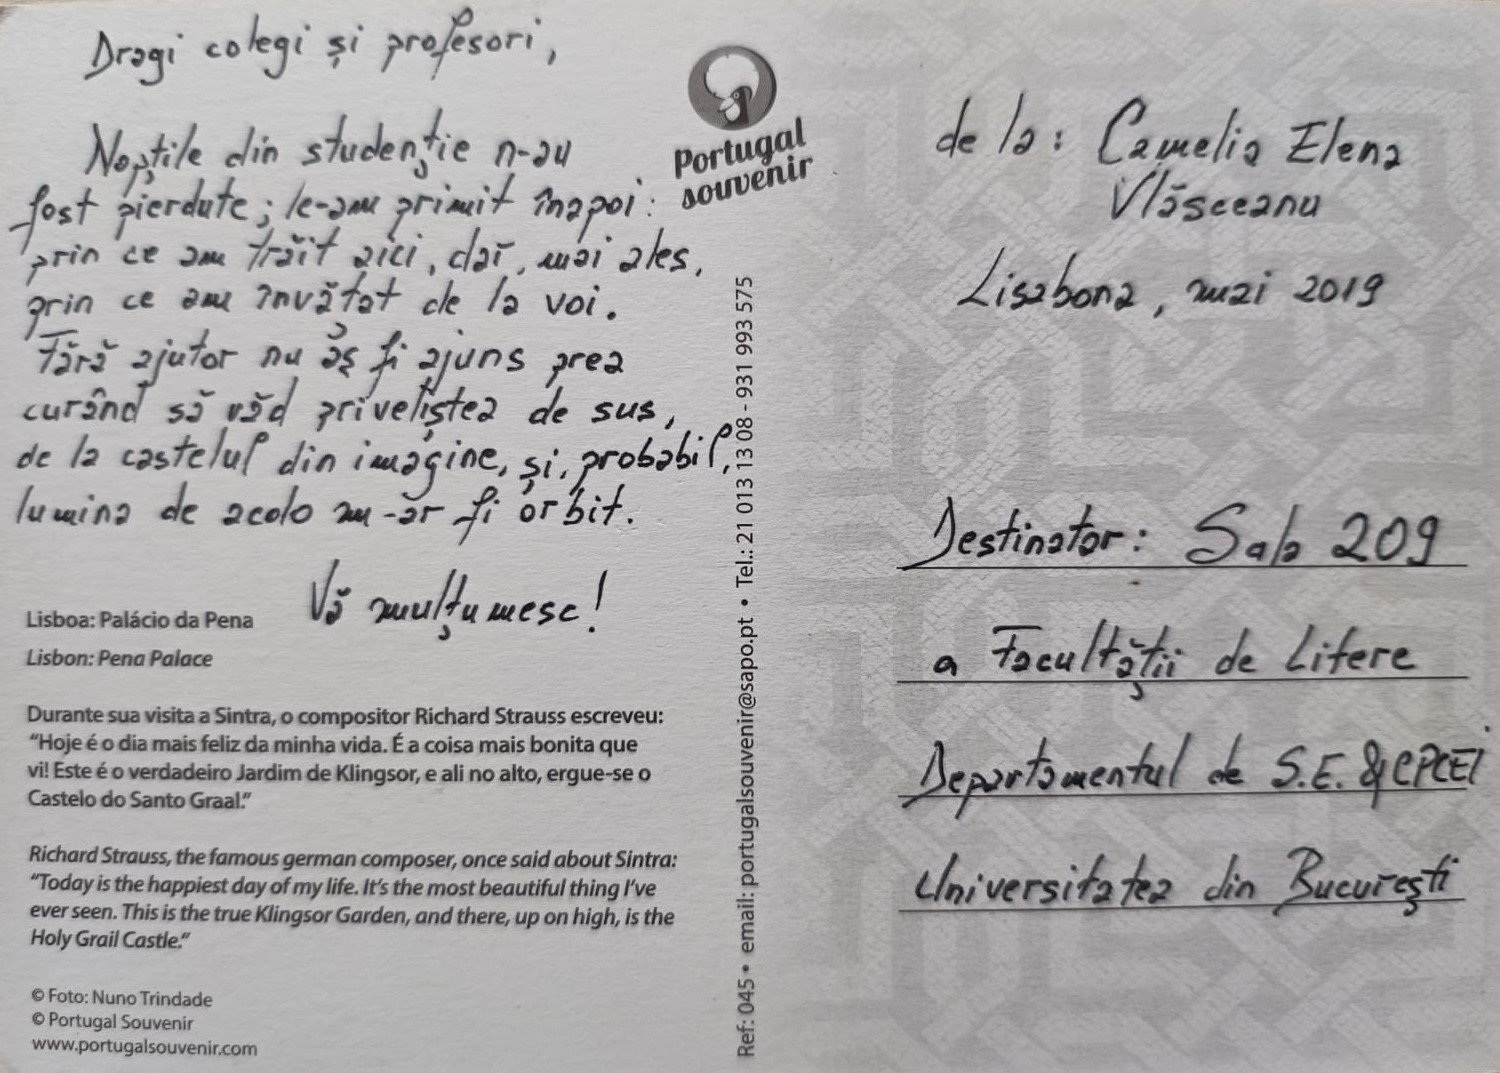 Dragi colegi și profesori,
Nopțile din studenție n-au
fost pierdute; le-am primit înapoi:
prin ce am trăit aici, dar, mai ales,
prin ce am învățat de la voi.
Fără ajutor nu aș fi ajuns prea
curând să văd priveliștea de sus,
de la castelul din imagine, și, probabil,
lumina de acolo m-ar fi orbit.
Vă mulțumesc!
Lisboa: Palácio da Pena
Lisbon: Pena Palace
Durante sua visita a Sintra, o compositor Richard Strauss escreveu:
“Hoje é o dia mais feliz da minha vida. É a coisa mais bonita que
vi! Este é o verdadeiro Jardim de Klingsor, e ali no alto, ergue-se o
Castelo do Santo Graal.“
Richard Strauss, the famous german composer, once said about Sintra:
“Today is the happiest day of my life. It's the most beautiful thing I've
ever seen. This is the true Klingsor Garden, and there, up on high, is the
Holy Grail Castle.“
© Foto: Nuno Trindade
© Portugal Souvenir
www.portugalsouvenir.com
Portugal
souvenir
Ref: 045 • email: portugalsouvenir@sapo.pt • Tel.: 21 013 13 08 - 931 993 575
de la: Camelia Elena
Vlăsceanu
Lisabona, mai 2019
Destinatar: Sala 209
a Facultății de Litere
Departamentul de S.E. & CPCEI
Universitatea din București